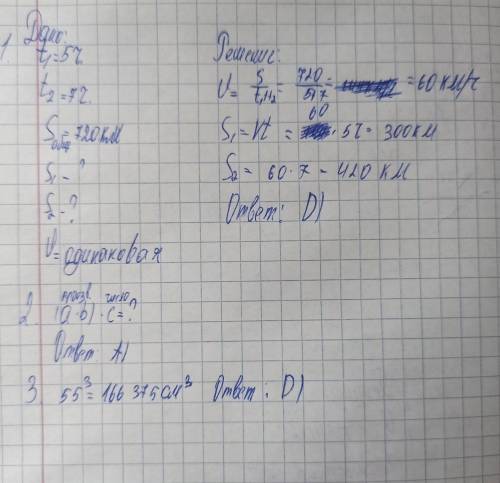 1. Дано:
t1=5ч.
t2=7ч.
Sобщ=720км
S1-?
S2-?
V=одинаковая
Решение:
V= S/t1+t2 = 720/5+7 = = 60 км/ч
S1=Vt = 60 · 5ч= 300км
S2= 60·7 = 420 км
Ответ: D)
произв. число
2. (a·b)·c=?
Ответ A)
3. 55³=166 375см³ Ответ: D)